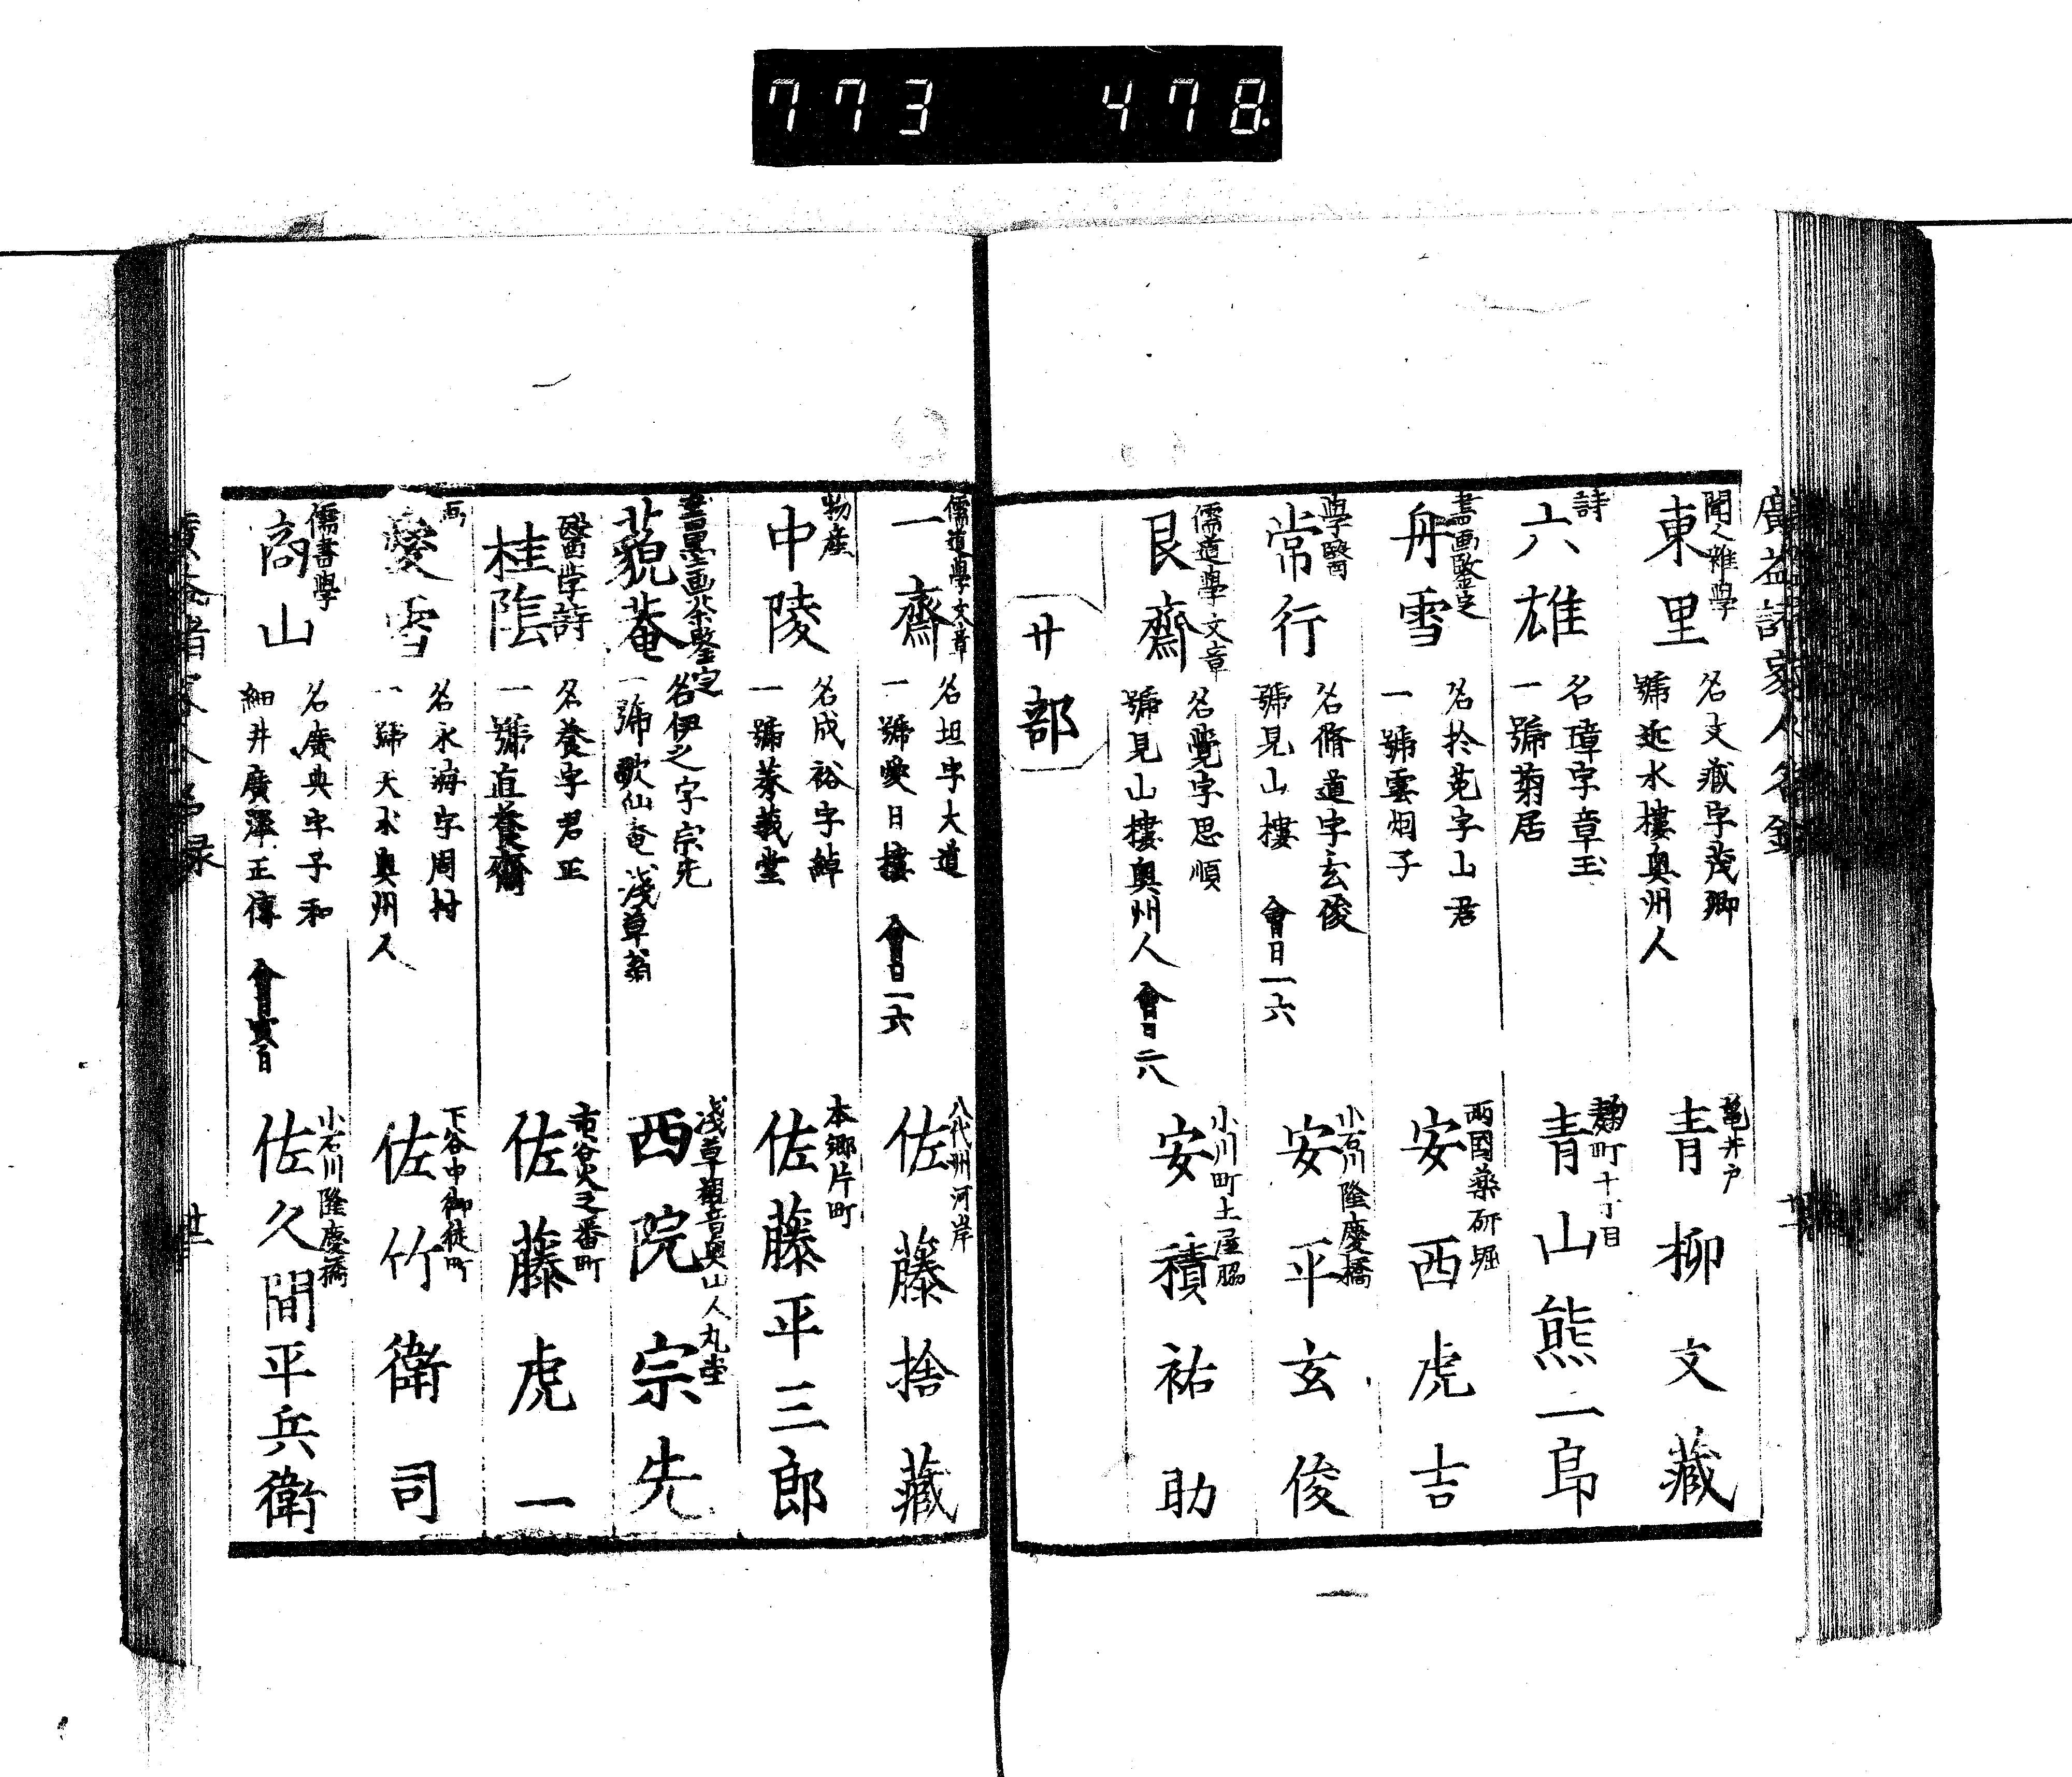 773 478
廣益諸家人名録
聞人雜學
東里
名文藏字茂卿
號近水樓奥州人
亀井戸
青柳文藏
詩
六雄
名璋字章玉
一號菊居
麹町十丁目
青山熊一郎
書画鑒定
舟雪
名於菟字山君
一號雲烟子
両國薬研堀
安西虎吉
學醫
常行
名脩道字玄俊
號見山樓 會日一六
小石川隆慶橋
安平玄俊
儒道學文章
艮齋
名覺字思順
號見山樓奥州人 會日二八
小川町土屋脇
安積祐助
サ部
儒道學文章
一齋
名坦字大道
一號愛日樓 會日一六
八代洲河岸
佐藤捨藏
物産
中陵
名成裕字綽
一號菶莪堂
本郷片町
佐藤平三郎
書墨画茶鑒定
藐菴
名伊之字宗先
一號歌仙庵 淺草翁
淺草観音奥山人丸堂
西院宗先
醫学詩
桂陰
名養字君正
一號直養齋
市谷火之番町
佐藤虎一
画
愛雪
名永海字周村
一號天水奥州人
下谷中御徒町
佐竹衛司
儒書學
商山
名廣典字子和
細井廣澤正傳
小石川隆慶橋
佐久間平兵衛
廣益諸家人名録